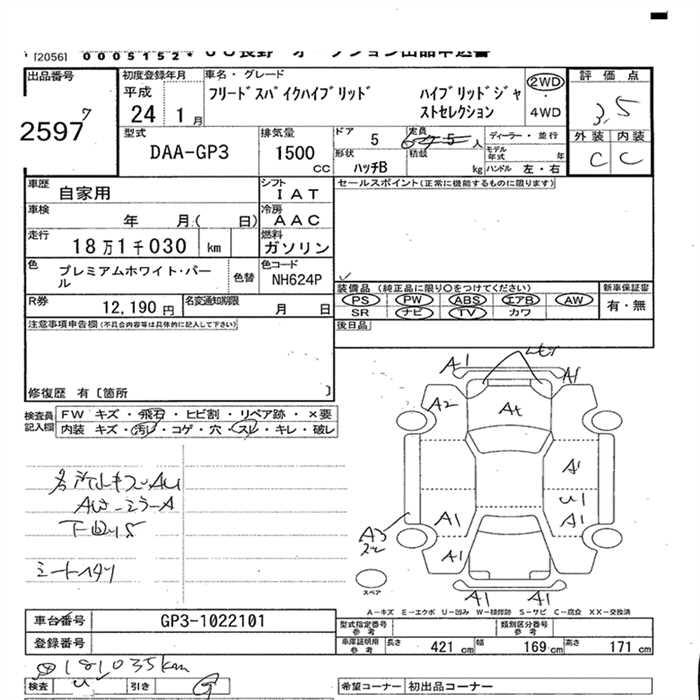 [2056] 0005152*
出品番号 初度登録年月 車名・グレード 2WD 評価点
平成 フリードスパイクハイブリッド ハイブリッドジャストセレクション
24 1月 ・4WD 3.5
7
2597
型式 排気量 ドア 5 定員 5人 ディーラー・並行 外装 内装
DAA-GP3 1500 cc 形状 ハッチB 積載 kg モデル年式 年 ハンドル 左・右 C C
車歴 自家用 シフト IAT セールスポイント(正常に機能するものに限ります)
車検 年 月( 日) 冷房 AAC
走行 18万1千030 km 燃料 ガソリン
色 プレミアムホワイト・パール 色替 色コード NH624P
装備品(純正品に限り〇をつけてください) 新車保証書
PS PW ABS エアB AW 有・無
SR ナビ TV カワ
R券 12,190円 名変通知期限 月 日
後日品
注意事項申告欄(不具合内容等は具体的に記入して下さい)
修復歴 有〔箇所 〕
検査員記入欄 FW キズ・飛石・ヒビ割・リペア跡・×要
内装 キズ・汚レ・コゲ・穴・スレ・キレ・破レ
A1 A1
A2 At
A1
U1
A1 A1
A3
A1
A1 A1
スペア
A-キズ E-エクボ U-凹み W-補修跡 S-サビ C-腐食 XX-交換済
車台番号 GP3-1022101
登録番号
型式指定番号参考 類別区分番号参考
車庫証明用参考 長さ 421cm 幅 169cm 高さ 171cm
181035km
検査 引き
希望コーナー 初出品コーナー